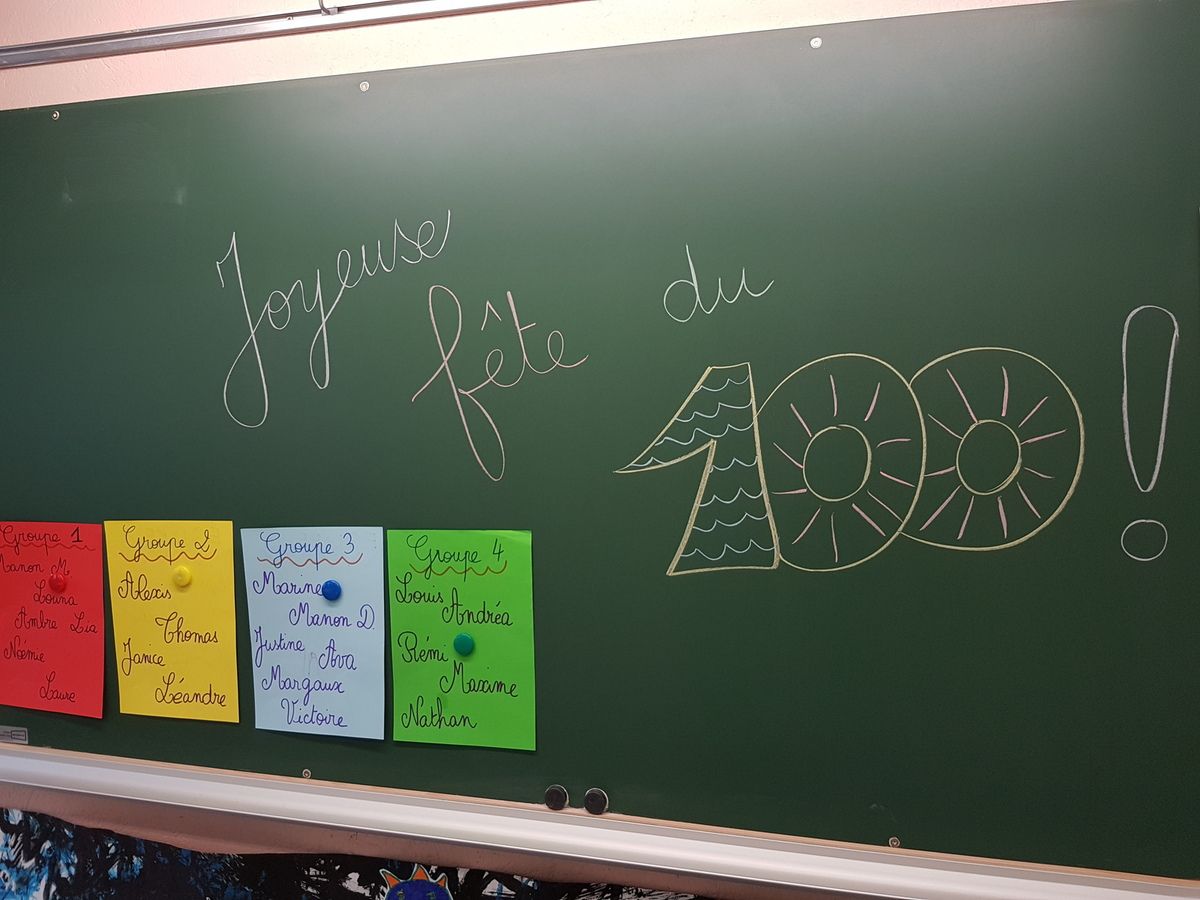 Joyeuse
fête
du
100 !
Groupe 1
Manon M.
Louna
Ambre Lia
Noémie
Laure
Groupe 2
Alexis
Thomas
Janice
Léandre
Groupe 3
Marine
Manon D.
Justine Ava
Margaux
Victoire
Groupe 4
Louis
Andréa
Rémi
Maxime
Nathan